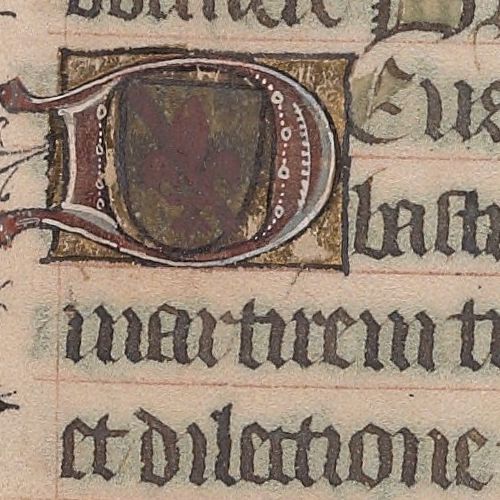 DEus
bastia
martirem tu
et dilectione